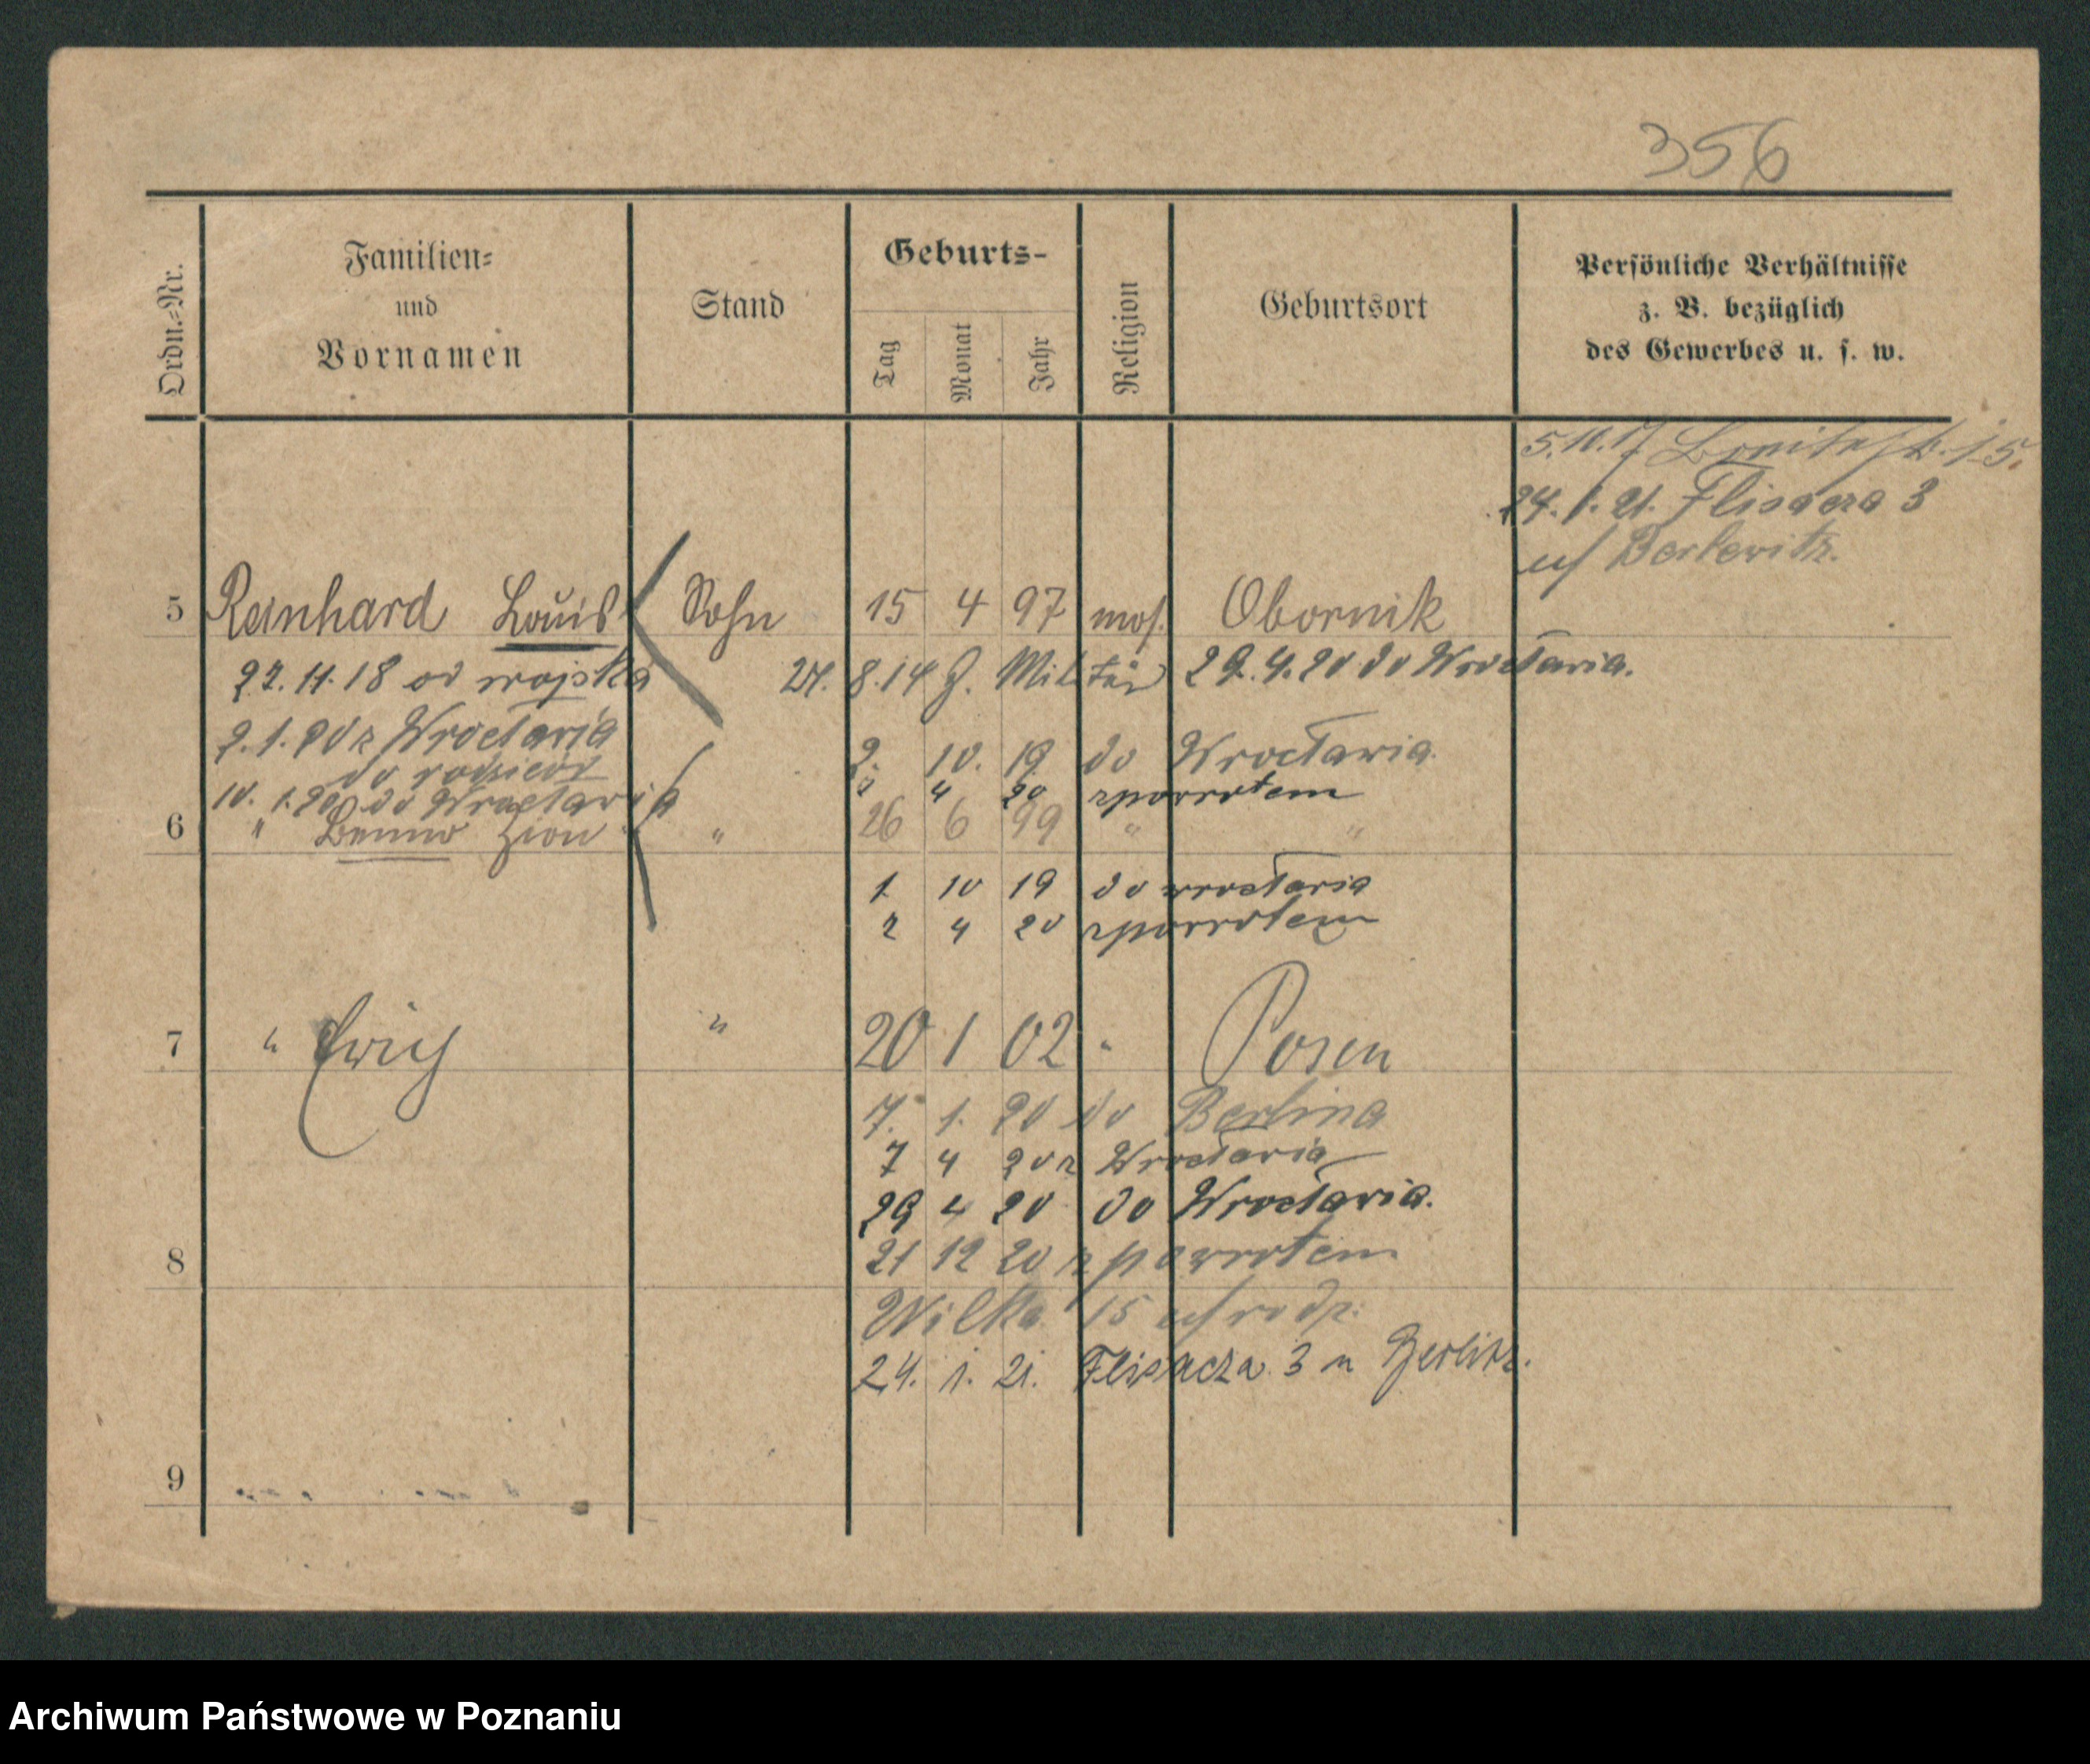 356
Ordn.-Nr.
Familien-
und
Vornamen
Stand
Geburts-
Tag
Monat
Jahr
Religion
Geburtsort
Persönliche Verhältnisse
z. B. bezüglich
des Gewerbes u. s. w.
5.10.17 15.
24. 1. 21. Flisacza 3
5 Reinhard Louis Sohn 15 4 97 mos. Obornik
27.11.18 od wojska 27. 8.14 z. Militär 29.4.20 do Wrocławia.
2.1.20 z Wrocławia
do rodziców 2. 10. 19 do Wrocławia.
10. 1.20 do Wrocławia 2 4 20 z powrotem
6 " Benno Zion " 26 6 99 " "
1 10 19 do Wrocławia
2 4 20 z powrotem
7 " Erich " 20 1 02 " Posen
7. 1. 20 do Berlina
7 4 20 z Wrocławia
29 4 20 do Wrocławia.
8 21 12 20 z powrotem
Wilka 15 u/rodz.
24. 1. 21. Flisacza 3 u
9
Archiwum Państwowe w Poznaniu